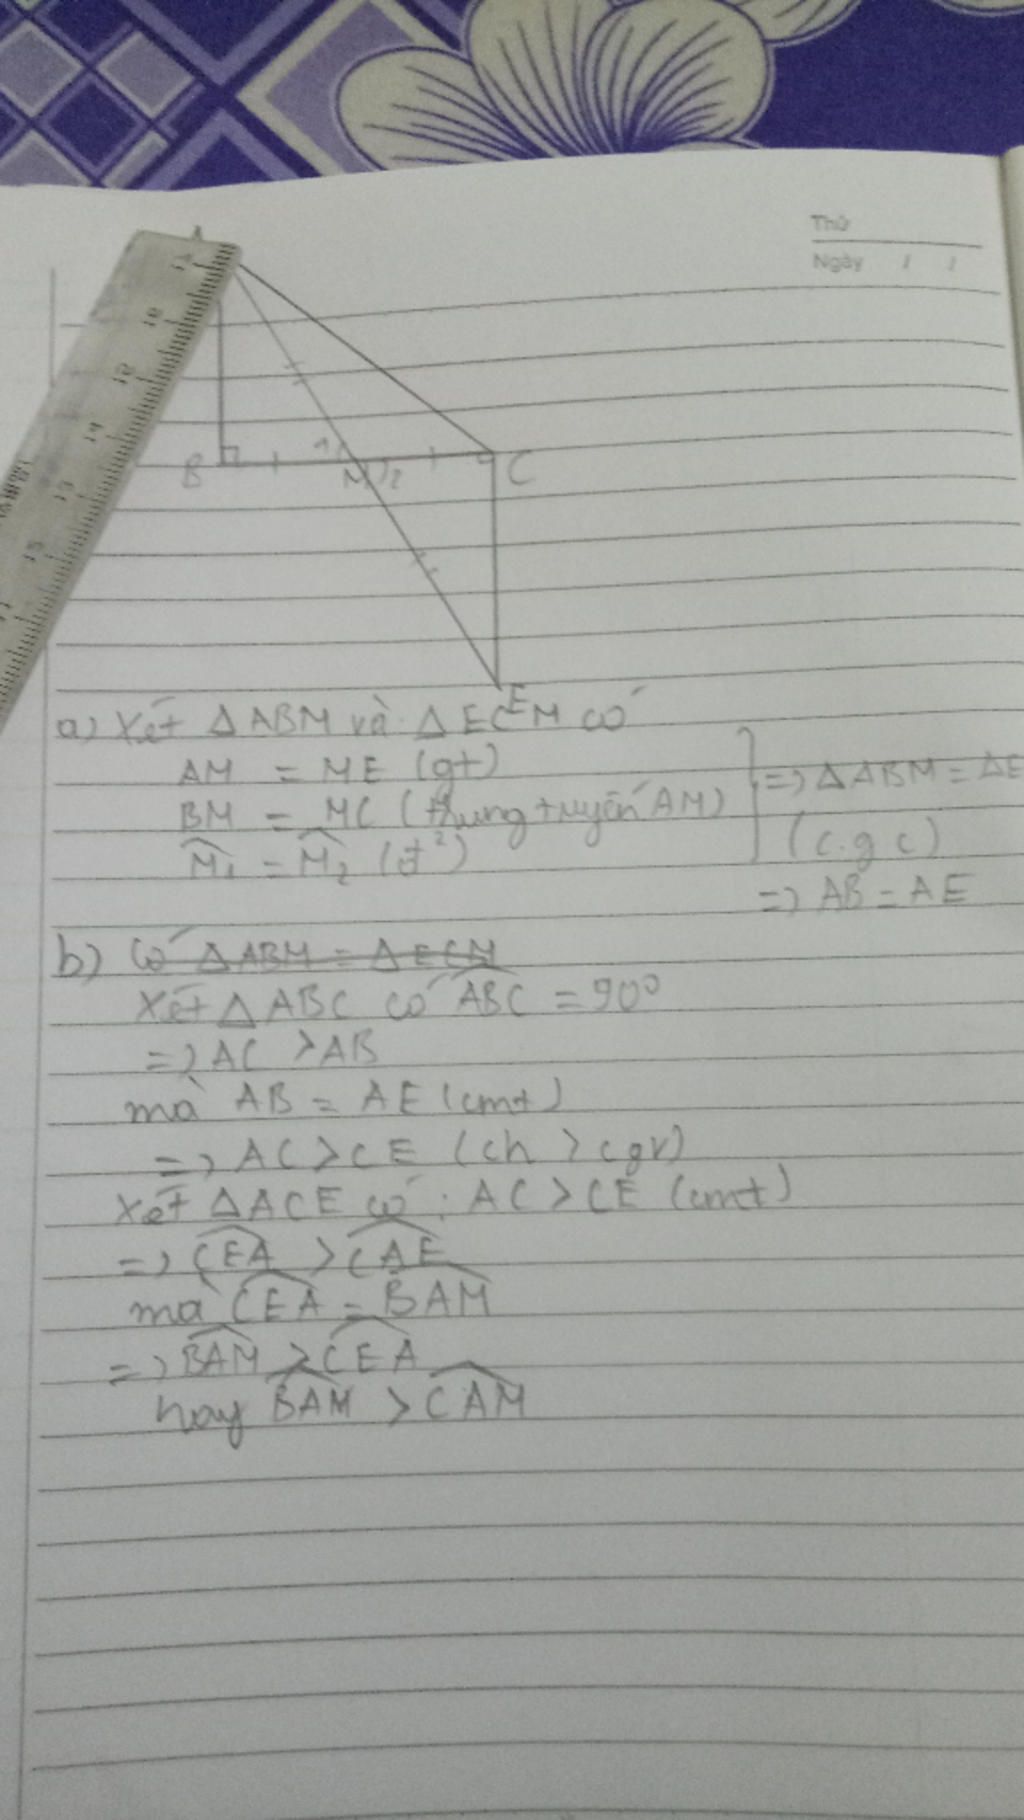 Thứ
Ngày / /
A
B
1
M
2
C
E
a) Xét Δ ABM và Δ ECM có
AM = ME (gt)
BM = MC (thung tuyến AM)
M₁ = M₂ (đ²)
=> Δ ABM = ΔE
(c.g c)
=> AB = AE
b) có Δ ABM = Δ ECM
Xét Δ ABC có ABC = 90°
=> AC > AB
mà AB = AE (cmt)
=> AC > CE (ch > cgv)
Xét ΔACE có : AC > CE (cmt)
=> CEA > CAE
mà CEA = BAM
=> BAM > CEA
hay BAM > CAM